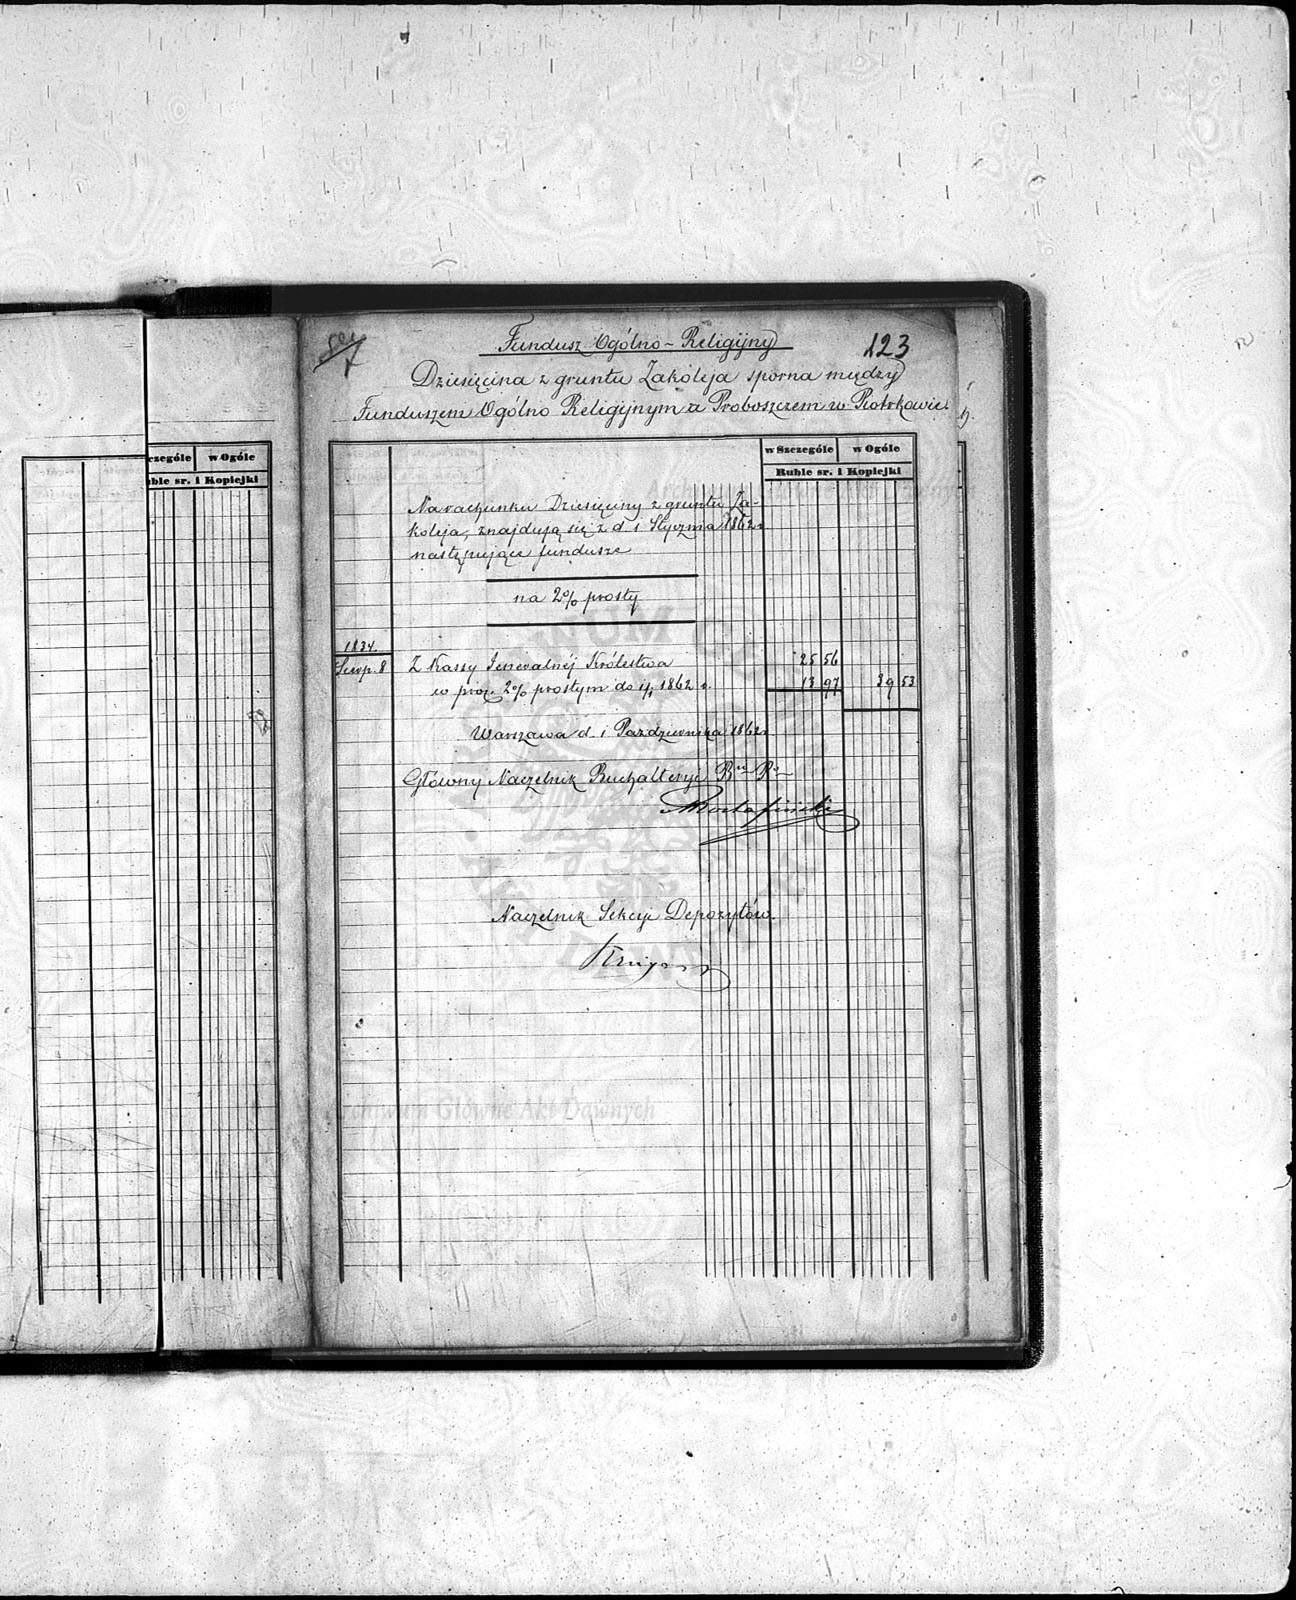 123
Fundusz Ogólno-Religijny
Dziesięcina z gruntu Zakoleja sporna między
Funduszem Ogólno Religijnym a Proboszczem w Piotrkowie.
w Szczególe w Ogóle
Ruble sr. i Kopiejki
czególe w Ogóle
uble sr. i Kopiejki
Na rachunku Dziesięciny z gruntu Za-
koleja, znajdują się z d. 1 Stycznia 1862 r.
następujące fundusze
na 2% prosty
1834.
Sierp. 8 Z Kassy Jeneralnéj Królestwa 25 56
w proc. 2% prostym do 1/1 1862 r. 13 97 39 53
Warszawa d. 1 Października 1862 r.
Główny Naczelnik Buchalteryi
Naczelnik Sekcyi Depozytów.
Archiwum Główne Akt Dawnych
Archiwum Główne Akt Dawnych